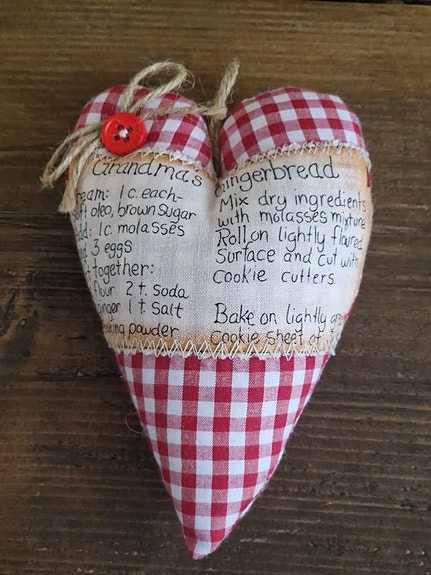 Grandma's Gingerbread
ream: 1 c. each-
ft oleo, brown sugar
dd: 1 c. molasses
d 3 eggs
t together:
flour 2 t. soda
nger 1 t. salt
king powder
Mix dry ingredients
with molasses mixture
Roll on lightly floured
Surface and cut with
cookie cutters.
Bake on lightly gre
Cookie sheet at